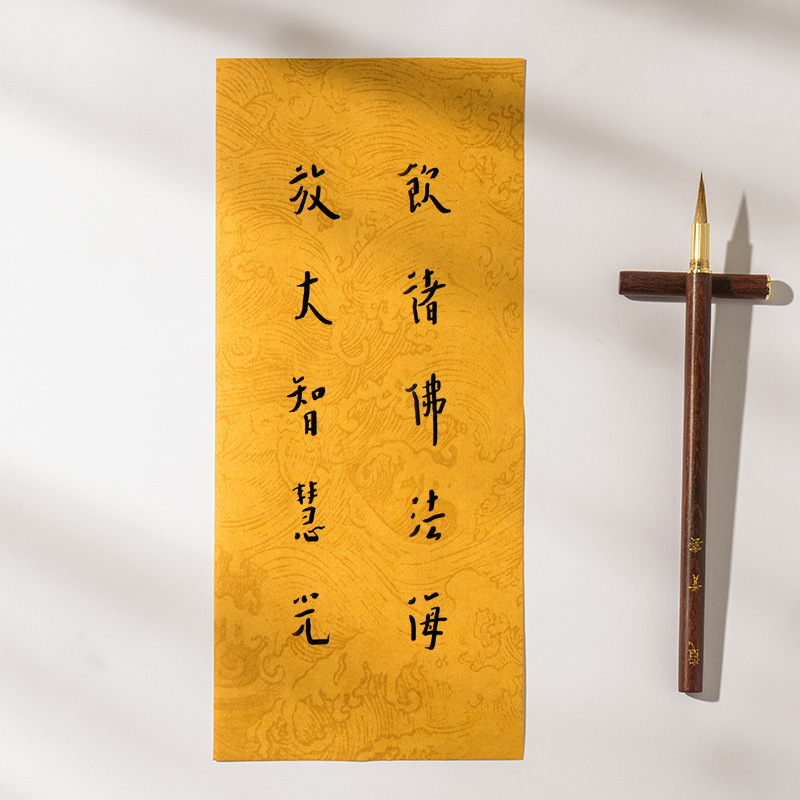 飲諸佛法海
放大智慧光